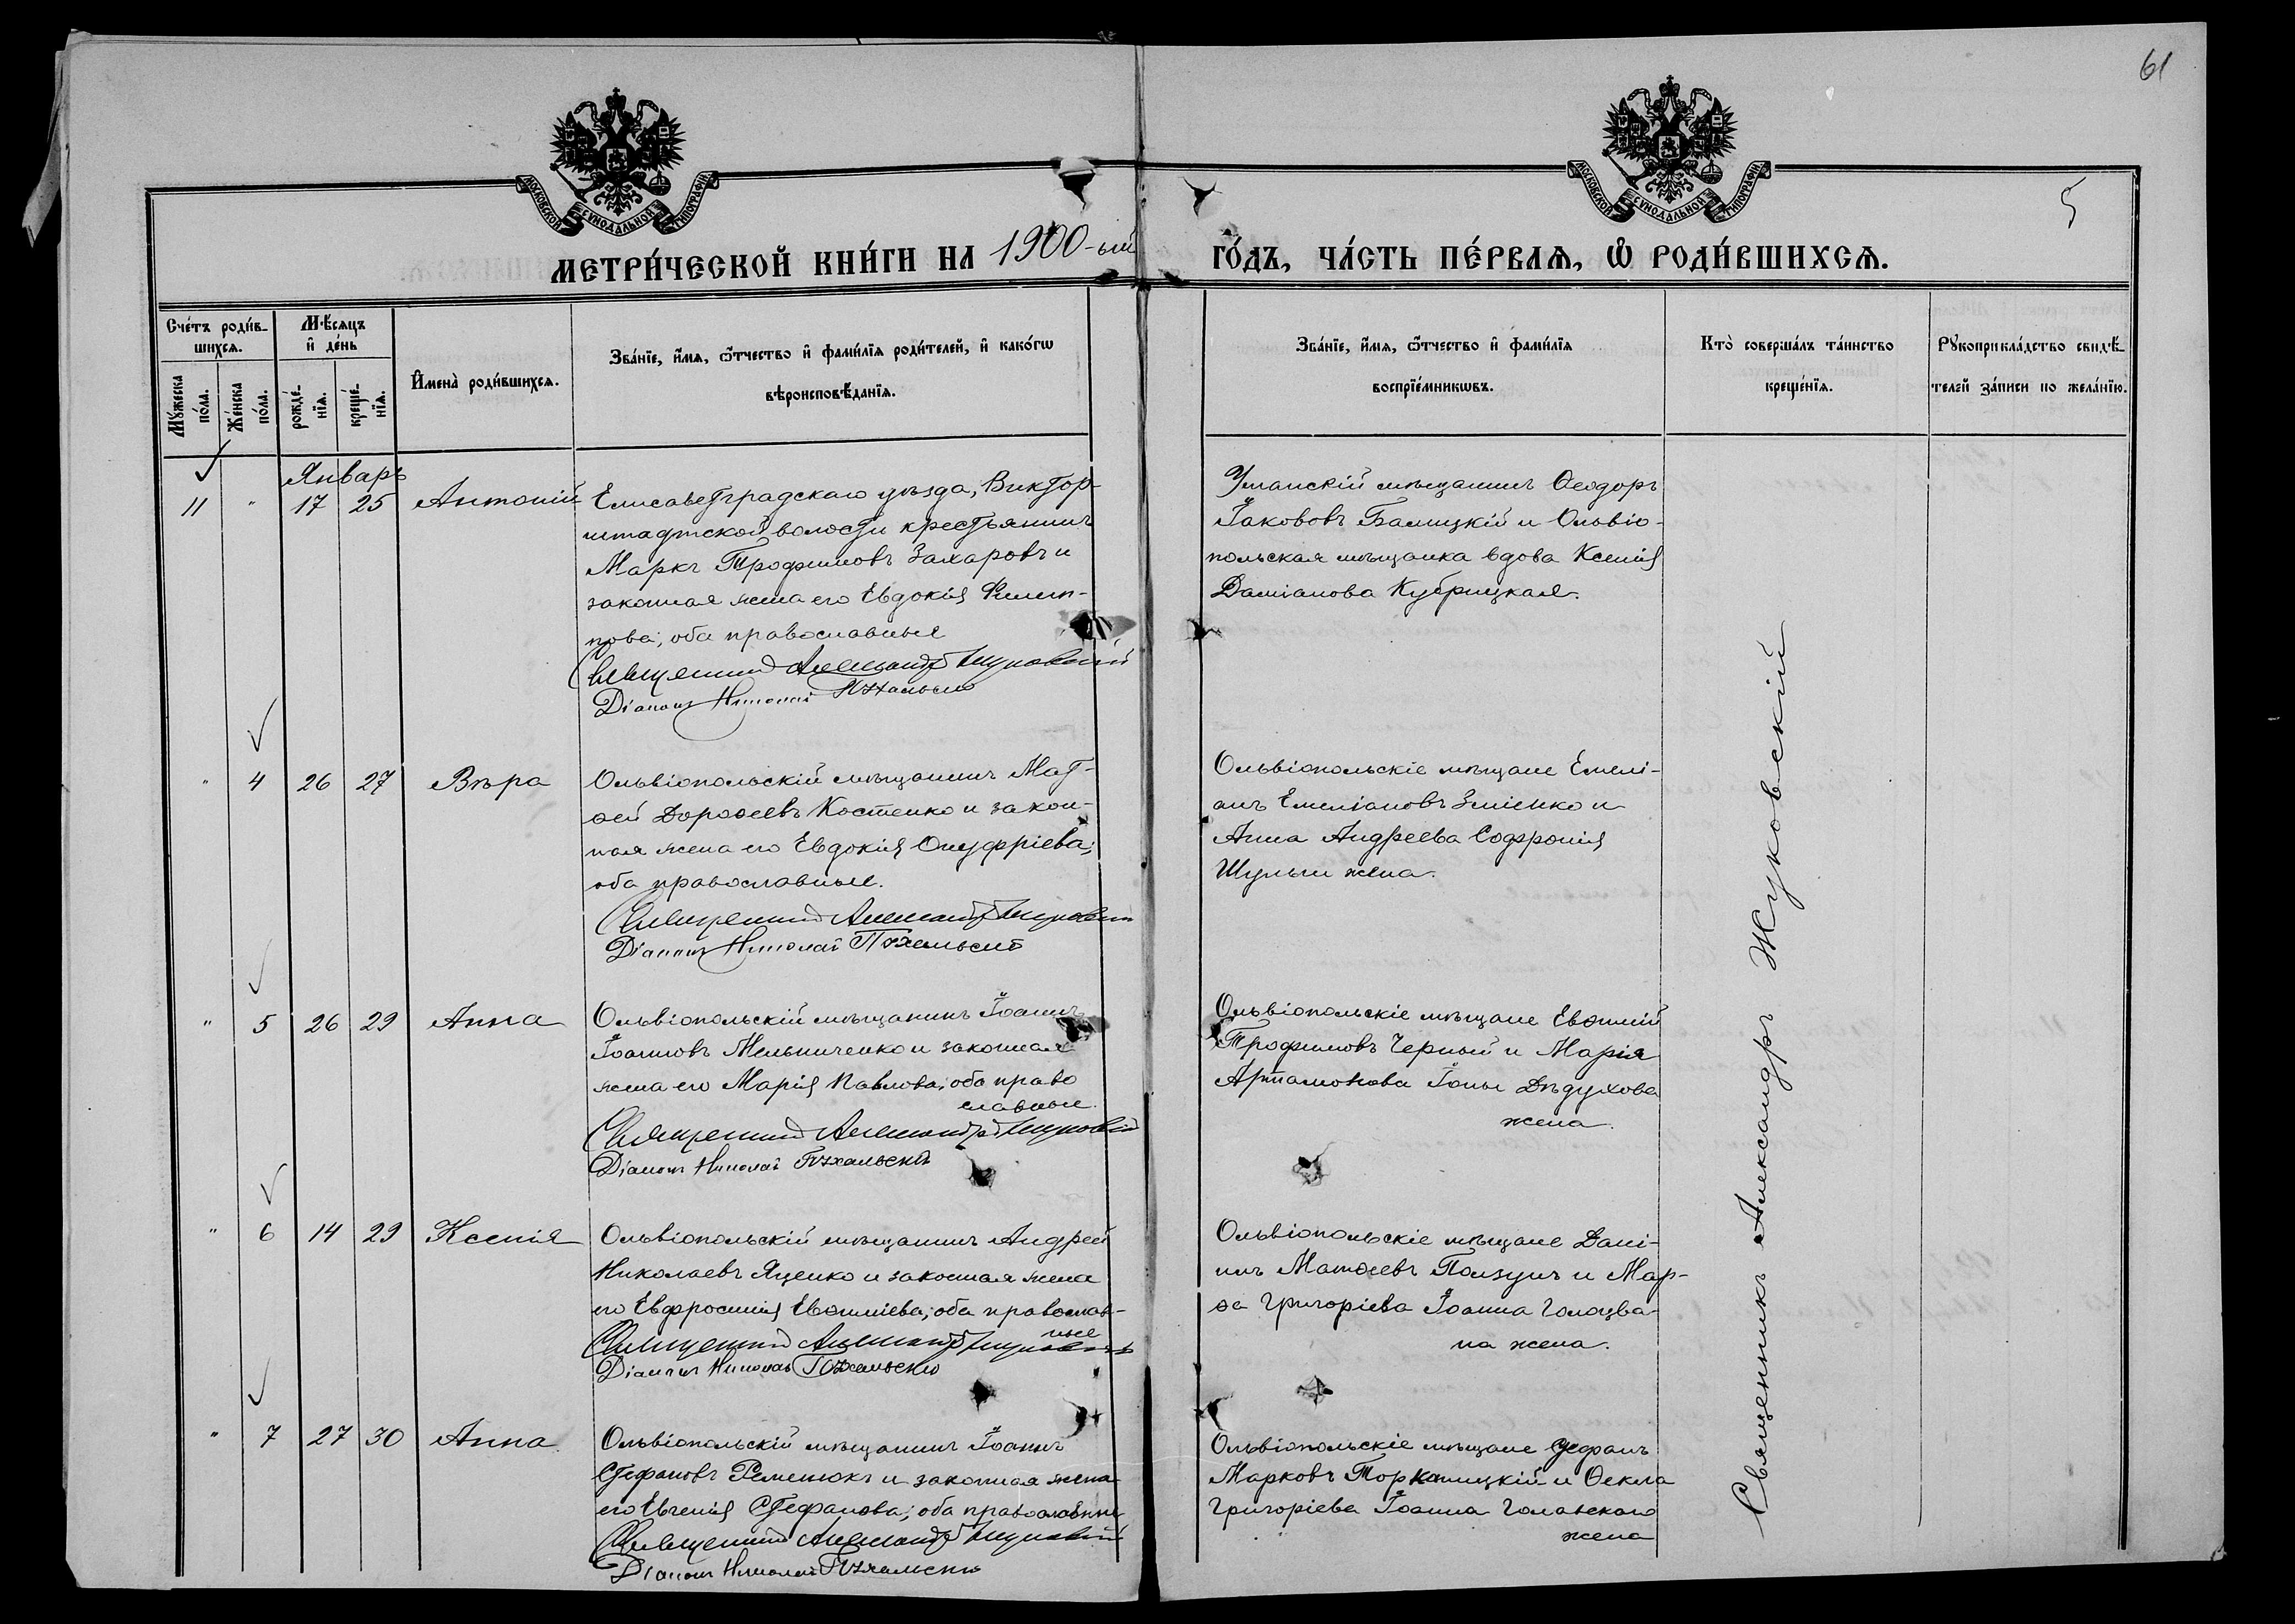 61
5
МОСКОВСКОЙ СѴНОДАЛЬНОЙ ТИПОГРАФІИ
МОСКОВСКОЙ СѴНОДАЛЬНОЙ ТИПОГРАФІИ
МЕТРИ́ЧЕСКОЙ КНИ́ГИ НА 1900-ый ГО́ДЪ, ЧА́СТЬ ПЕ́РВАѦ, Ѡ҆ РОДИ́ВШИХСѦ.
Сче́тъ роди́в-
шихсѧ.
Мѣ́сѧцъ
и҆ де́нь
Мꙋ́жеска
по́ла.
Же́нска
по́ла.
рожде́-
нїѧ.
креще́-
нїѧ.
И҆мена̀ роди́вшихсѧ.
Зва́нїе, и҆́мѧ, ѻ҆́тчество и҆ фами́лїѧ роди́телей, и҆ како́гѡ
вѣроисповѣ́данїѧ.
Зва́нїе, и҆́мѧ, ѻ҆́тчество и҆ фами́лїѧ
воспрїе́мникѡвъ.
Кто̀ соверша́лъ та́инство
креще́нїѧ.
Рꙋкоприкла́дство свидѣ́-
телей за́писи по жела́нїю.
Январь
11 " 17 25 Антоній
Елисаветградскаго уѣзда, Виктор-
штадтской волости крестьянинъ
Маркъ Трофимовъ Захаровъ и
законная жена его Евдокія Филип-
пова; оба православные
Священникъ Александръ Жуковскій
Діаконъ Николай Пухальскій
Уманскій мѣщанинъ Ѳеодоръ
Іакововъ Балицкій и Ольвіо-
польская мѣщанка вдова Ксенія
Даміанова Кубрицкая.
" 4 26 27 Вѣра
Ольвіопольскій мѣщанинъ Мат-
ѳей Дороѳеевъ Костенко и закон-
ная жена его Евдокія Онуфріева;
оба православные.
Священникъ Александръ Жуковскій
Діаконъ Николай Пухальскій
Ольвіопольскіе мѣщане Емелі-
анъ Емеліановъ Зміенко и
Анна Андреева Софронія
Шульги жена.
" 5 26 29 Анна
Ольвіопольскій мѣщанинъ Іоаннъ
Іоанновъ Мельниченко и законная
жена его Марія Павлова; оба право
славные.
Священникъ Александръ Жуковскій
Діаконъ Николай Пухальскій
Ольвіопольскіе мѣщане Евѳимій
Трофимовъ Черный и Марія
Артамонова Іоны Дѣдухова
жена.
" 6 14 29 Ксенія
Ольвіопольскій мѣщанинъ Андрей
Николаевъ Яценко и законная жена
его Евфросинія Евѳиміева; оба православ-
ные
Священникъ Александръ Жуковскій
Діаконъ Николай Пухальскій
Ольвіопольскіе мѣщане Дані-
илъ Матѳеевъ Ползунъ и Мар-
ѳа Григоріева Іоанна Голоцва-
на жена.
" 7 27 30 Анна
Ольвіопольскій мѣщанинъ Іоаннъ
Стефановъ Ременюкъ и законная жена
его Евгенія Стефанова; оба православные
Священникъ Александръ Жуковскій
Діаконъ Николай Пухальскій
Ольвіопольскіе мѣщане
Марковъ и Ѳекла
Григоріева Іоанна Голавскаго
жена
Священникъ Александръ Жуковскій